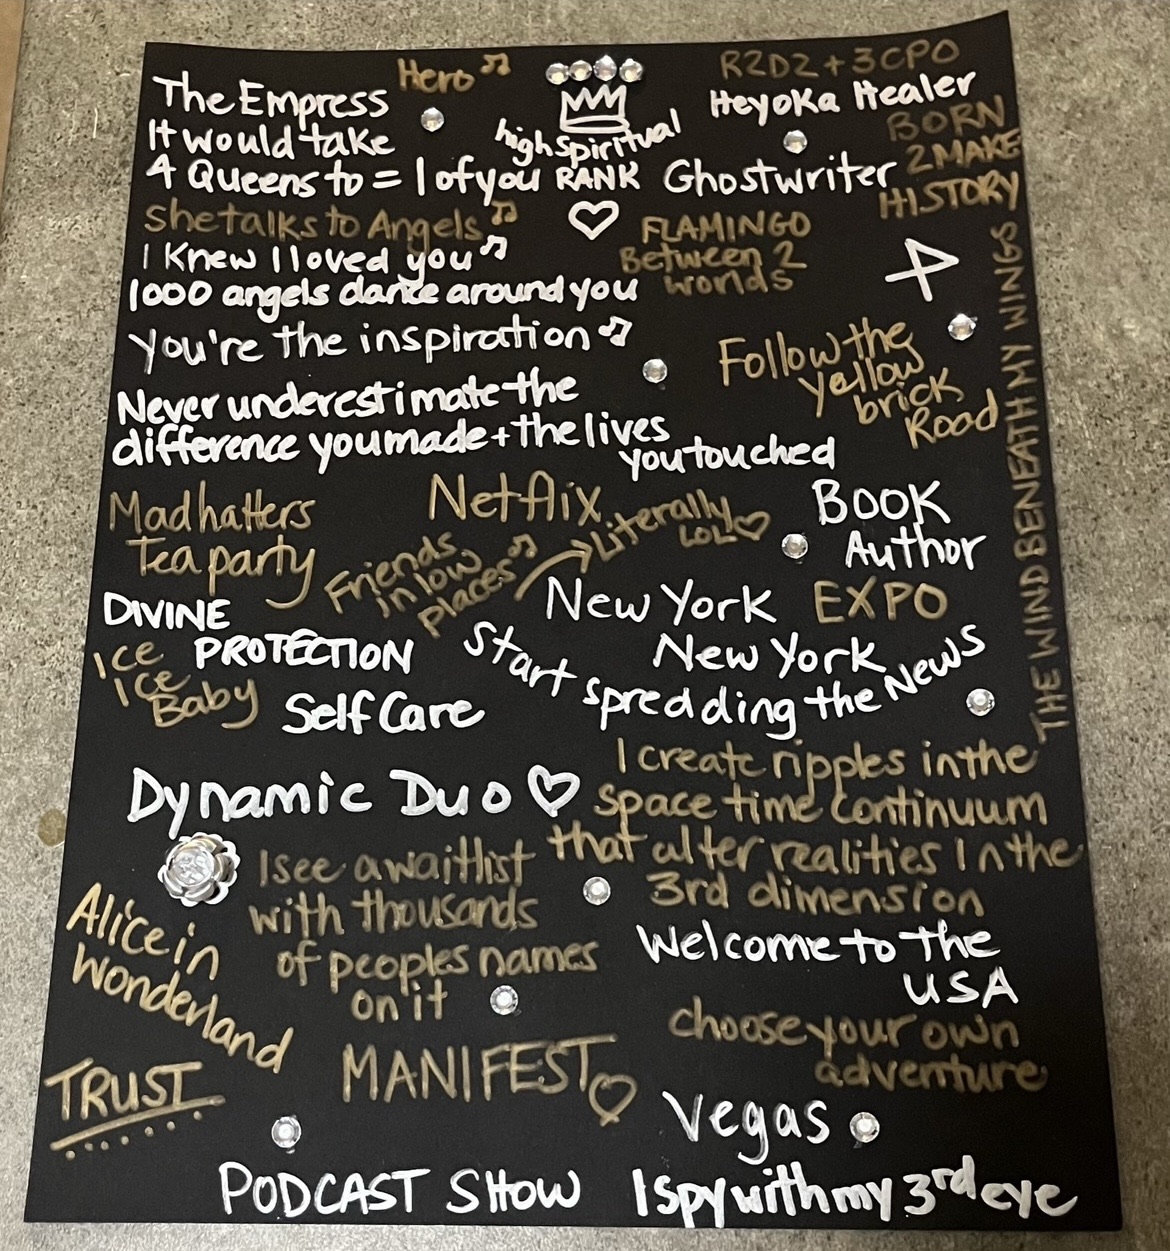 Hero
R2D2 + 3CPO
The Empress
Heyoka Healer
It would take
high Spiritual
BORN
4 Queens to = 1 of you
RANK
Ghostwriter
2MAKE
HISTORY
She talks to Angels
FLAMINGO
Between 2
worlds
I Knew I loved you
1000 angels dance around you
4
You're the inspiration
THE WIND BENEATH MY WINGS
Follow the
yellow
brick
Road
Never underestimate the
difference you made + the lives
you touched
Madhatters
Tea party
Netflix
Literally
LOL
BOOK
Author
Friends
in low
places
New York
EXPO
DIVINE
PROTECTION
New York
Start spredding the News
Ice
Ice
Baby
Self Care
I create ripples in the
space time continuum
that alter realities in the
3rd dimension
Dynamic Duo
I see a waitlist
with thousands
of peoples names
on it
Alice in
Wonderland
Welcome to the
USA
choose your own
adventure
TRUST
MANIFEST
Vegas
PODCAST SHOW
I spy with my 3rd eye